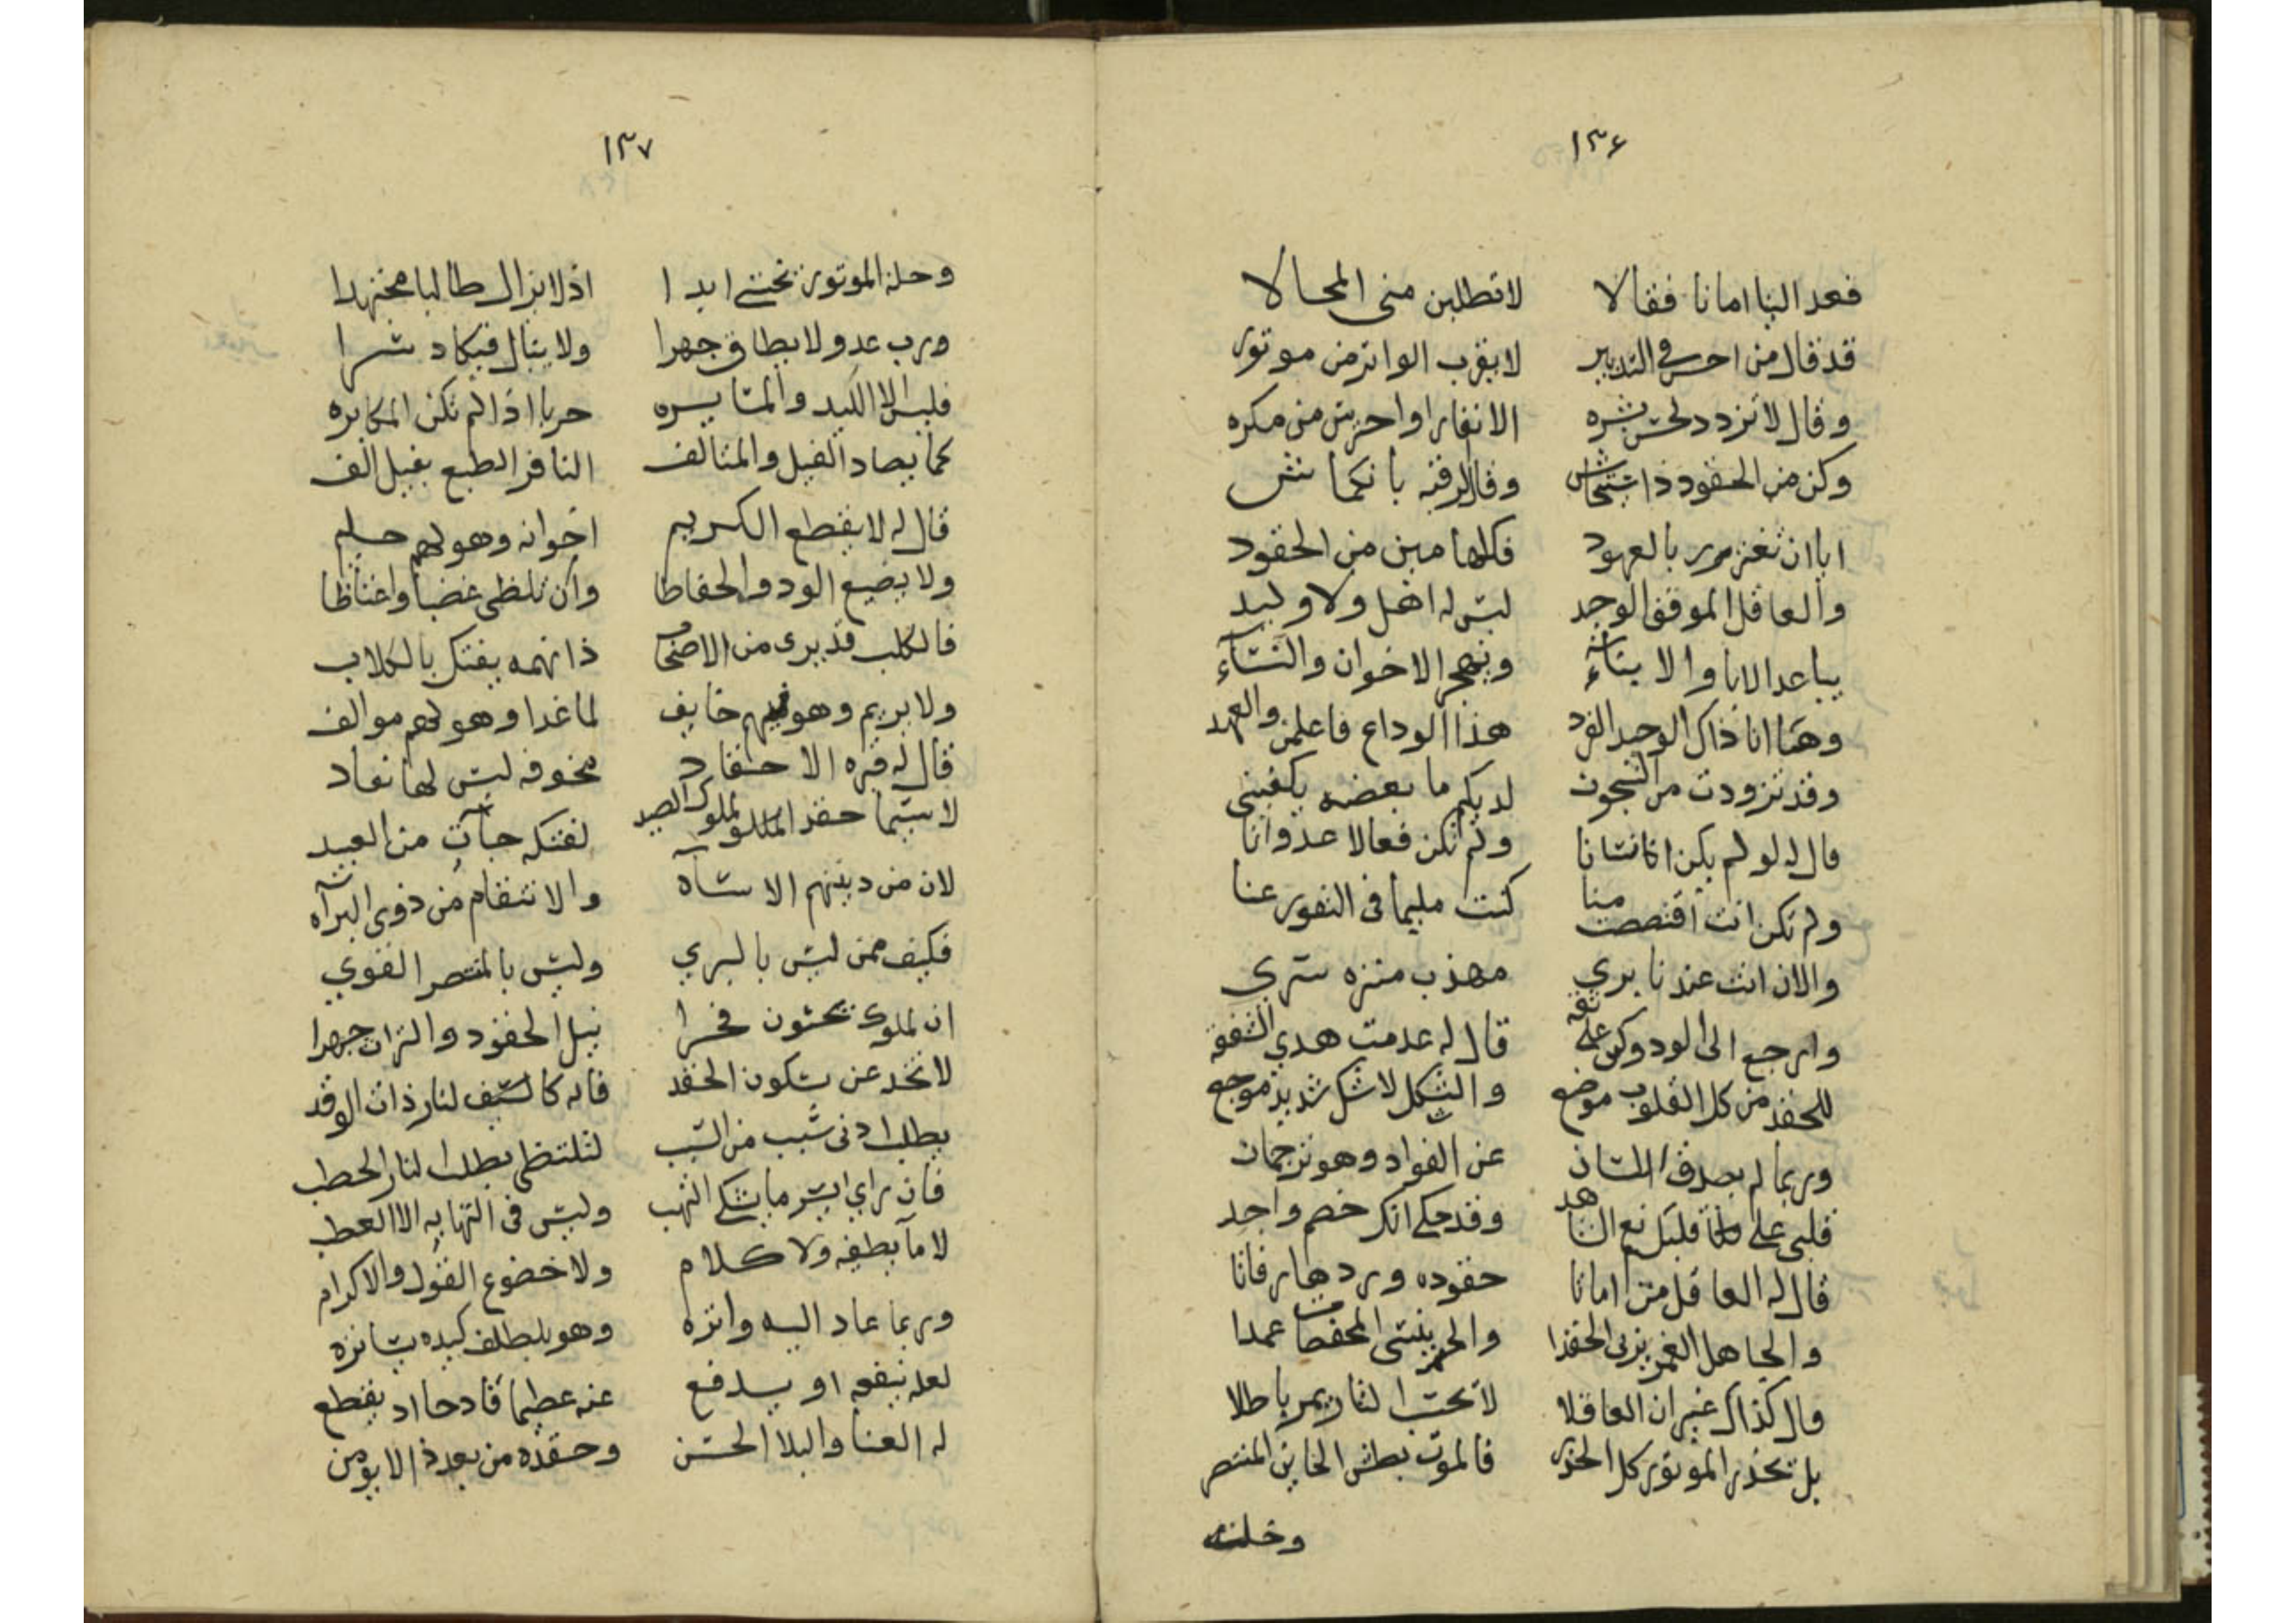 ١٣٦
فعد الينا امانا فقالا لا تطلبن منى المحالا
قد قال من احسن في التدبير لا يقرب الواتر من موتور
وقال لا تزدد لحسن بشره الا نفارا واحترس من مكره
وكن من الحقود ذا استيحاش وقال لا ترفته بانكماش
اياان تغتر بالعهود فكلها مين من الحقود
والعاقل الموفق الوحيد ليس له اهل ولا وليد
يباعد الابا والابناء ويهجر الاخوان والنساء
وهئا انا ذاك الوحيد الفرد هذا الوداع فاعلمن والعهد
وقد تزودت من الشجون لديكم ما بعضه يكفيني
قال له لو لم يكن اكانسانا ولم تكن فعالا عدوانا
ولم تكن انت اقتصصت منا كنت مليما في النفور عنا
والان انت عندنا بري مهذب منزه سري
وارجع الى الود وكن على ثقه قال له عدمت هدي الثقه
للحقد من كل القلوب موضع والثكل لا شك شديد موجع
وربما لم يصدق اللسان عن الفواد وهو ترجمان
قلبي على قلبك نع الشاهد وقد حكى انك خصم واجد
قال له العاقل من امانا حقوده وردها رفاتا
والجاهل الغمر يربى الحقدا والحر ينسى المحفظات عمدا
قال كذاك غير ان العاقلا لا تحسب الثار يمر باطلا
بل تحذر الموتور كل الحذر فالموت بطش الخاين المنتصر
وحلة
١٣٧
وحلة الموتور تخشى ابدا اذ لا يزال طالبا مجتهدا
ورب عدو لا يطاق جهرا ولا ينال فيكاد سرا
فليس الا الكيد والمتايسره حربا اذا لم تكن المكابره
كما يصاد الفيل والمتالف النافر الطبع بفيل الف
قال له لا يقطع الكريم اخوانه وهو لهم حليم
ولا يضيع الود والحفاظا وان تلظى غضبا واغتاظا
فالكلب قد يرى من الاصحاب ذا نهمه يفتك بالكلاب
ولا يريم وهو فيهم خايف لما غدا وهو لهم موالف
قال له قزه الاحقاد مخوفه ليس لها نفاد
لا سيما حقد الملوك الصيد لفتكه جات من العبيد
لان من دينهم الاساه والانتقام من ذوي البراه
فكيف ممن ليس بالبري وليس بالمنتصر القوي
ان الملوك يحسبون فخرا نيل الحقود والترات جهرا
لا تخدعن بسكون الحقد فانه كالسيف لنار ذات الوقد
يطلب ادنى سبب من السبب لتلتظى بطلب النار الحطب
فان راي ايسر ما يشكى التهب وليس في التهابه الا العطب
لا ما يطفيه ولا كلام ولا خضوع القول والاكرام
وربما عاد اليه واتره وهو بلطف كيده يساتره
لعله ينفعه او يدفع عنه عظيما قادحا اد يقطع
له العنا والبلا الحسن وحقده من بعد ذا لا يومن